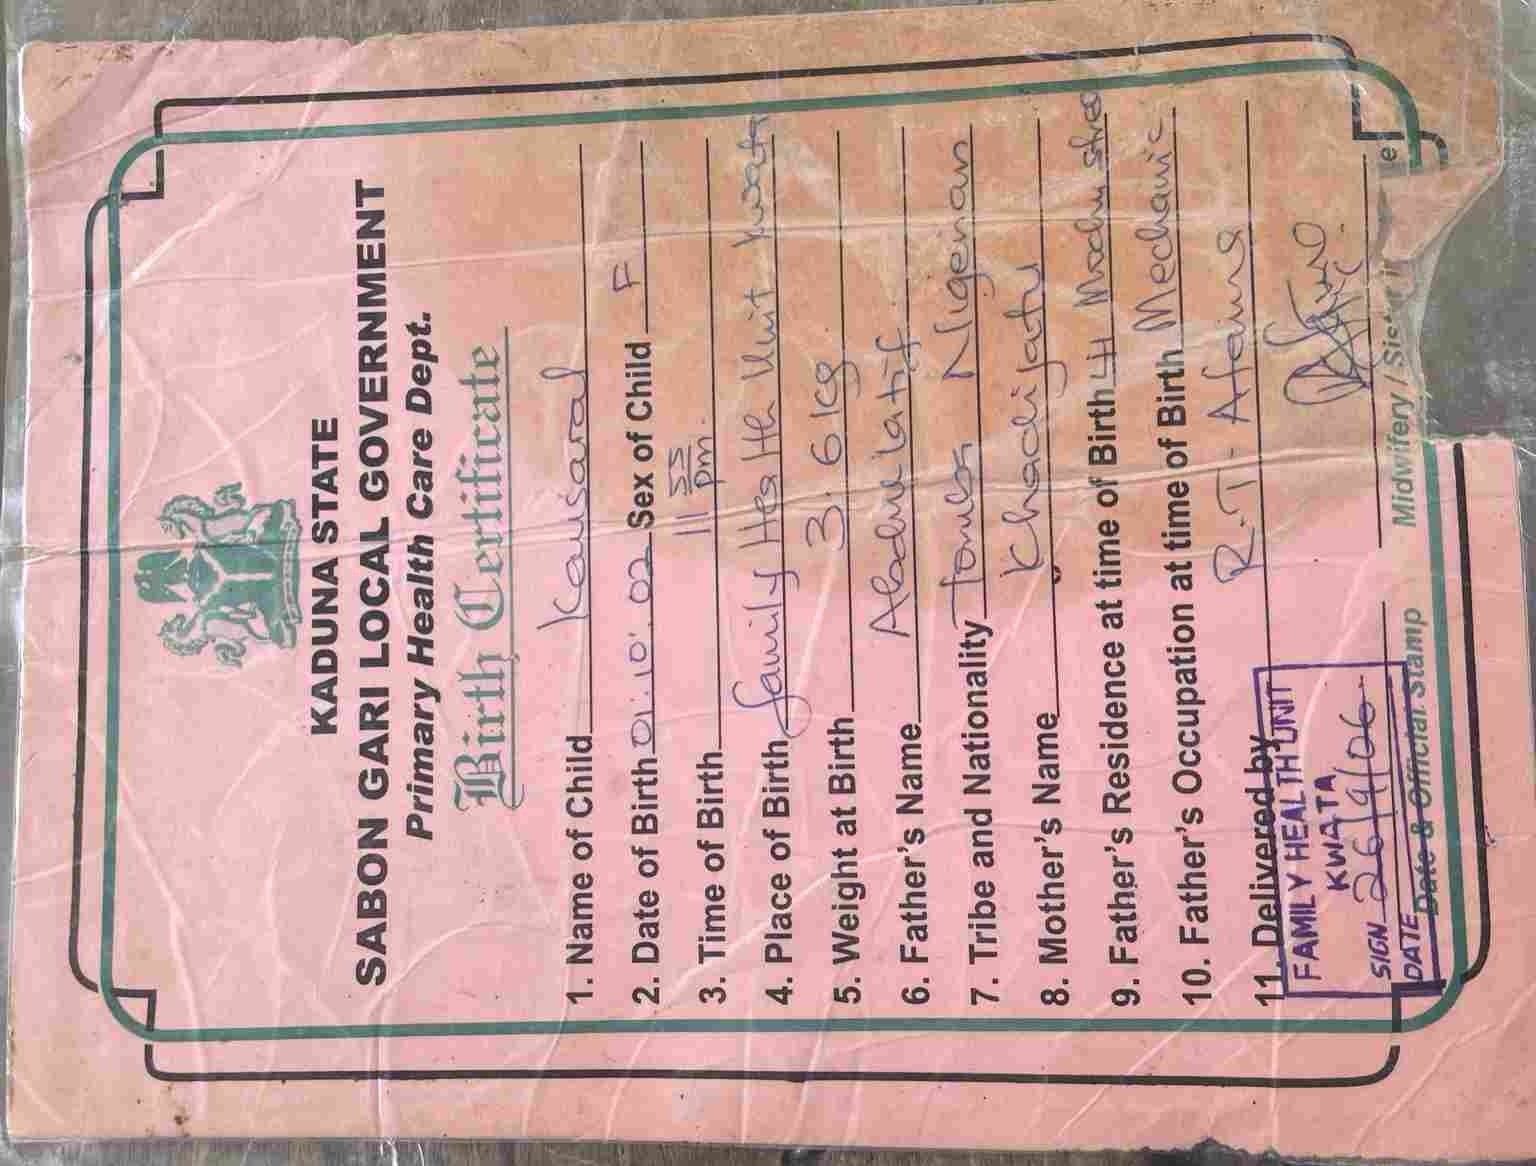 KADUNA STATE
SABON GARI LOCAL GOVERNMENT
Primary Health Care Dept.
Birth Certificate
1. Name of Child Kausarat
2. Date of Birth 01.10.02 Sex of Child F
3. Time of Birth 11 55 pm.
4. Place of Birth Family Health Unit Kwata
5. Weight at Birth 3.6kg
6. Father's Name Abdulatif
7. Tribe and Nationality Nigerian
8. Mother's Name Khadijatu
9. Father's Residence at time of Birth Street
10. Father's Occupation at time of Birth Mechanic
11. Delivered by R.T.
FAMILY HEALTH UNIT
KWATA
SIGN 26/9/06
DATE
Date & Official Stamp Midwifery / Sister